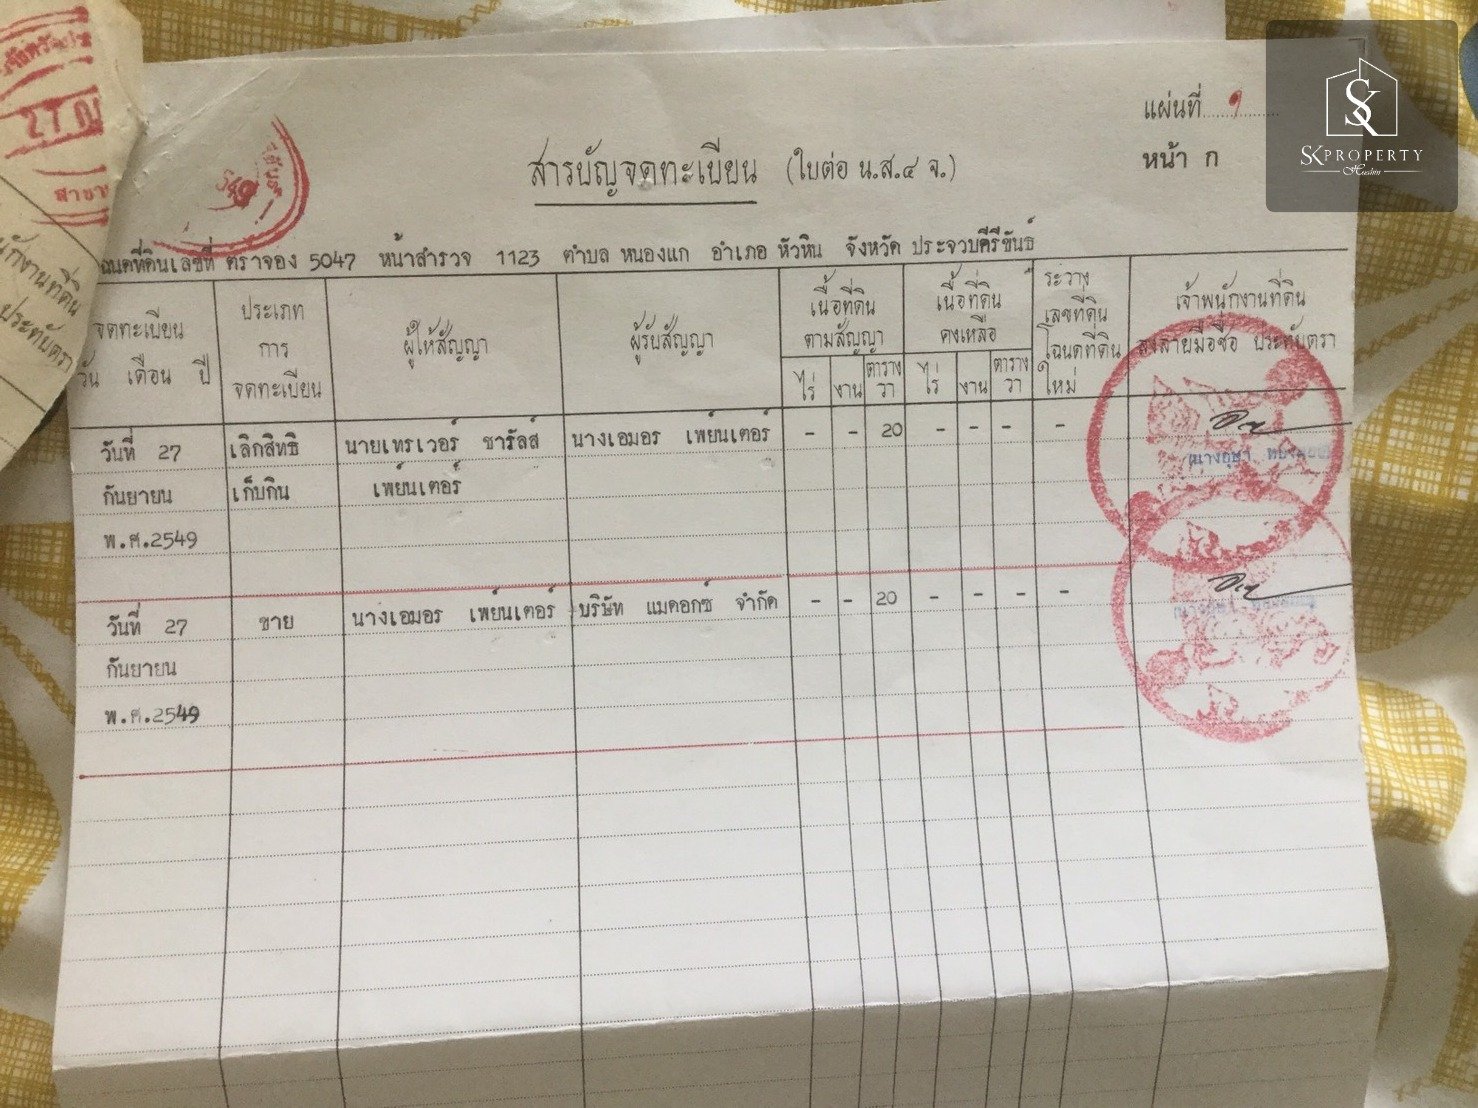 27 ก
สาขา
แผ่นที่ ๑
หน้า ก
SK
SK PROPERTY
Huahin
สารบัญจดทะเบียน (ใบต่อ น.ส.๔ จ.)
โฉนดที่ดินเลขที่ ตราจอง 5047 หน้าสำรวจ 1123 ตำบล หนองแก อำเภอ หัวหิน จังหวัด ประจวบคีรีขันธ์
นักงานที่ดิน
ประทับตรา
จดทะเบียน
วัน เดือน ปี
ประเภท
การ
จดทะเบียน
ผู้ให้สัญญา
ผู้รับสัญญา
เนื้อที่ดิน
ตามสัญญา
ไร่ งาน ตาราง
วา
เนื้อที่ดิน
คงเหลือ
ไร่ งาน ตาราง
วา
ระวาง
เลขที่ดิน
โฉนดที่ดิน
ใหม่
เจ้าพนักงานที่ดิน
ลงลายมือชื่อ ประทับตรา
วันที่ 27 เลิกสิทธิ นายเทรเวอร์ ชาร์ลส์ นางเอมอร เพย์นเตอร์ - - 20 - - - -
กันยายน เก็บกิน เพย์นเตอร์
พ.ศ.2549
วันที่ 27 ขาย นางเอมอร เพย์นเตอร์ บริษัท แมคอกซ์ จำกัด - - 20 - - - -
กันยายน
พ.ศ.2549